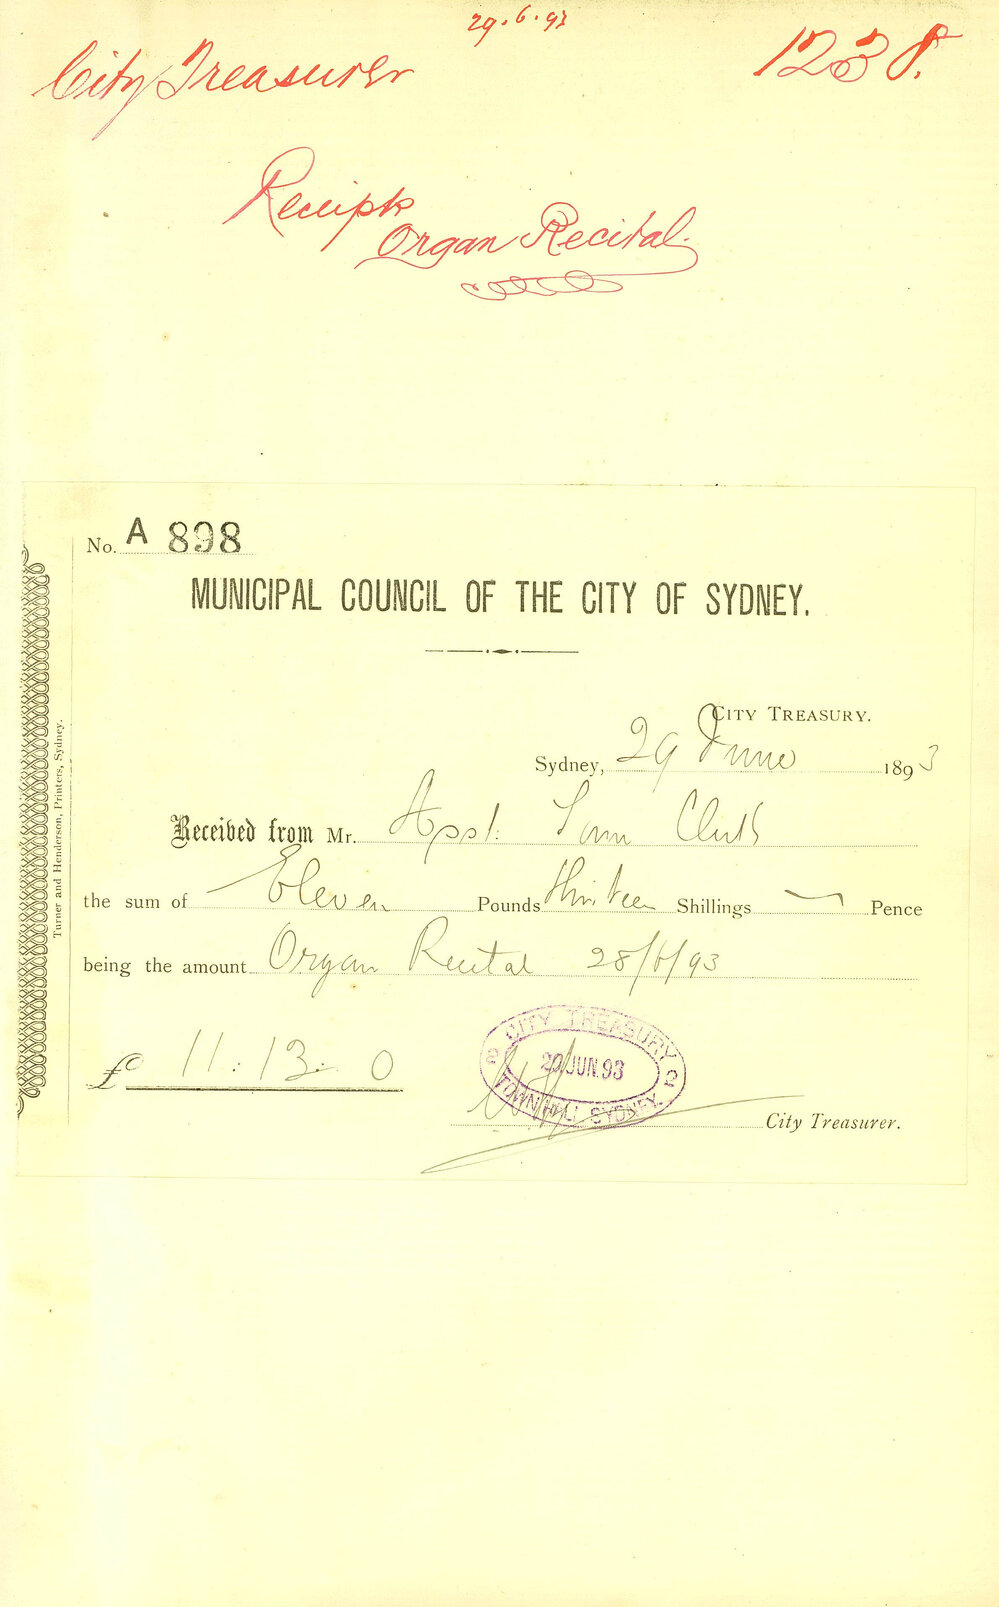 29.6.93
City Treasurer
1238.
Receipts
Organ Recital.
No. A 898
MUNICIPAL COUNCIL OF THE CITY OF SYDNEY.
CITY TREASURY.
Sydney, 29 June 1893
Received from Mr. Asst. Town Clerk
the sum of Eleven Pounds Thirteen Shillings — Pence
being the amount Organ Recital 28/6/93
£ 11: 13: 0
CITY TREASURY
29 JUN. 93
TOWN HALL SYDNEY.
2 2
City Treasurer.
Turner and Henderson, Printers, Sydney.